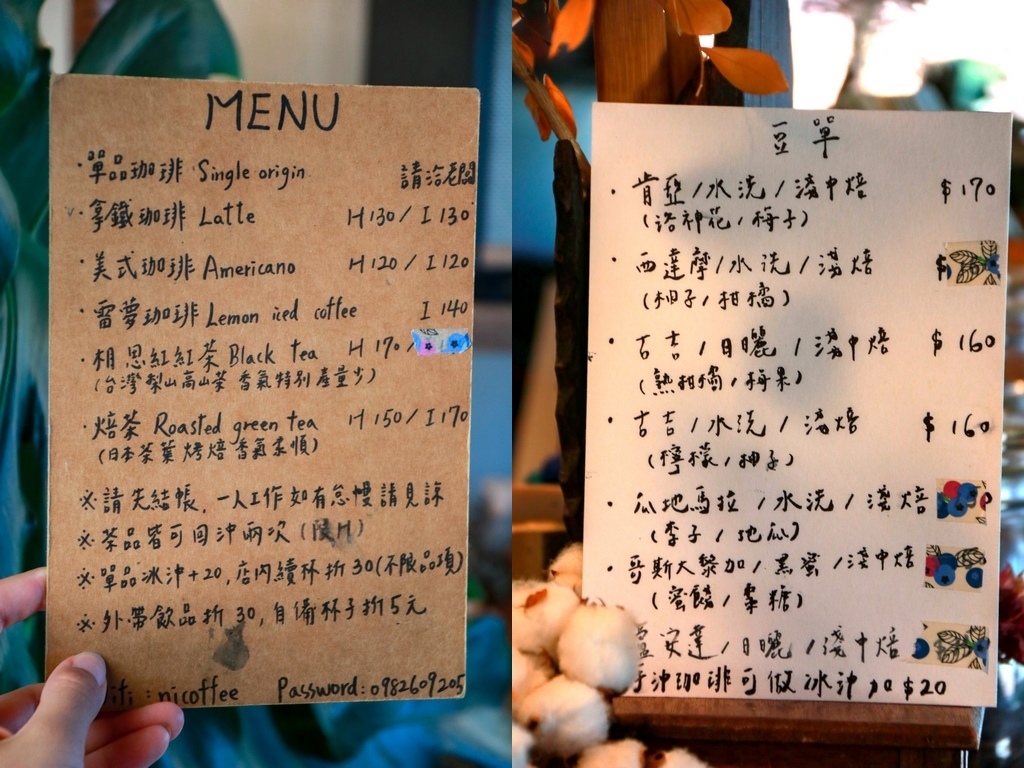 MENU
·單品咖啡 Single origin 請洽老闆
·拿鐵咖啡 Latte H 130 / I 130
·美式咖啡 Americano H 120 / I 120
·雷夢咖啡 Lemon iced coffee I 140
·相思紅紅茶 Black tea H 170 /
(台灣梨山高山茶 香氣特別產量少)
·焙茶 Roasted green tea H 150 / I 170
(日本茶葉烤焙香氣柔順)
※請先結帳,一人工作如有怠慢請見諒
※茶品皆可回沖兩次(限H)
※單品冰沖+20,店內續杯折30(不限品項)
※外帶飲品折30,自備杯子折5元
: nicoffee Password: 0982609205
豆單
·肯亞/水洗/淺中焙 $170
(洛神花/梅子)
·西達摩/水洗/淺焙 $
(柚子/柑橘)
·古吉/日曬/淺中焙 $160
(熟柑橘/梅果)
·古吉/水洗/淺焙 $160
(檸檬/柚子)
·瓜地馬拉/水洗/淺焙
(李子/地瓜)
·哥斯大黎加/黑蜜/淺中焙
(蜜餞/黑糖)
盧安達/日曬/淺中焙
手沖咖啡可做冰沖加$20